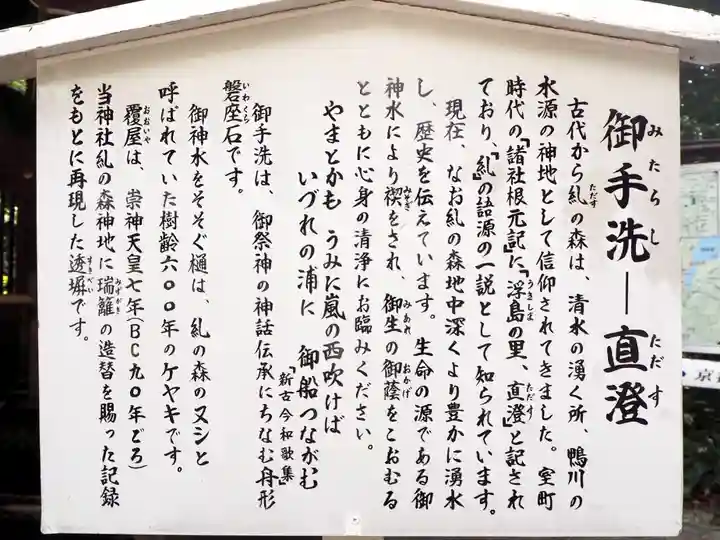 御手洗―直澄
みたらし ただす
古代から糺の森は、清水の湧く所、鴨川の
ただす
水源の神地として信仰されてきました。室町
時代の『諸社根元記』に「浮島の里、直澄」と記され
うきしま ただす
ており、『糺』の語源の一説として知られています。
現在、なお糺の森地中深くより豊かに湧水
し、歴史を伝えています。生命の源である御
神水により禊をされ、御生の御蔭をこおむる
みそぎ みあれ おかげ
とともに心身の清浄にお臨みください。
やまとかも うみに嵐の西吹けば
いづれの浦に 御船つながむ
『新古今和歌集』
御手洗は、御祭神の神話伝承にちなむ舟形
磐座石です。
いわくら
御神水をそそぐ樋は、糺の森のヌシと
呼ばれていた樹齢六〇〇年のケヤキです。
覆屋は、崇神天皇七年(BC九〇年ごろ)
おおいや
当神社糺の森神地に瑞籬の造替を賜った記録
みずがき
をもとに再現した透塀です。
すきべい
京